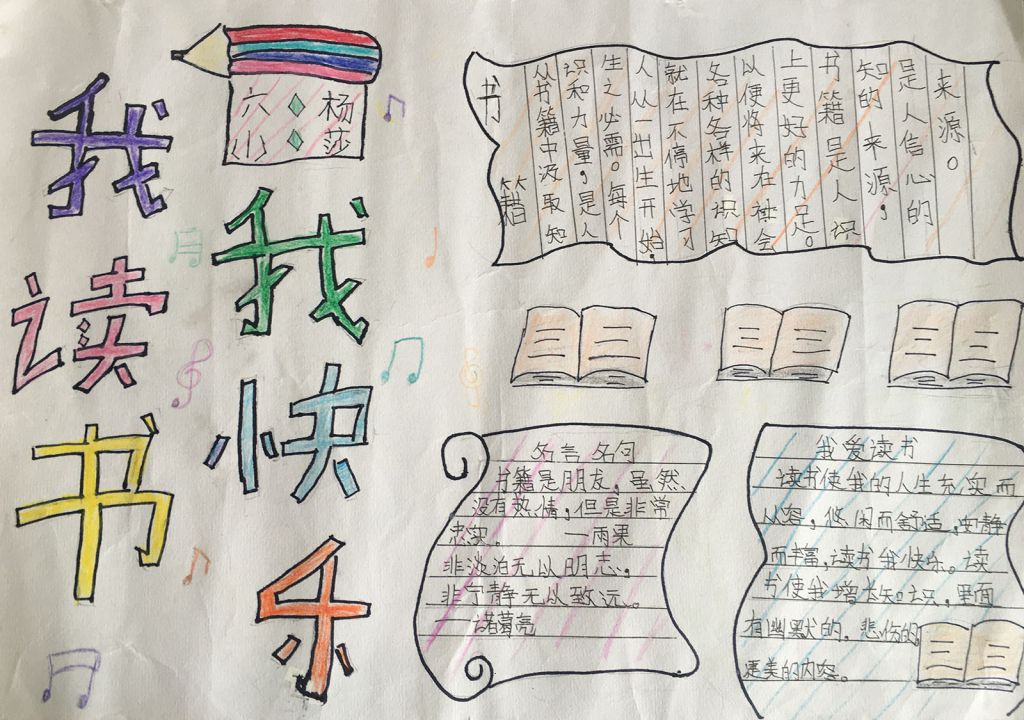 我读书
我快乐
六 杨
小 莎
书籍
从书籍中汲取知
识和力量,是人
生之必需。每个
人从一出生开始,
就在不停地学习
各种各样的识知
以便将来在社会
上更好的九足。
书籍是人识
知的来源,
是人信心的
来源。
名言名句
书籍是朋友,虽然
没有热情,但是非常
忠实。 —雨果
非淡泊无以明志,
非宁静无以致远。
—诸葛亮
我爱读书
读书使我的人生充实而
从容,悠闲而舒适,安静
而丰富,读书我快乐。读
书使我增长知识,里面
有幽默的,悲伤的,
更美的内容。